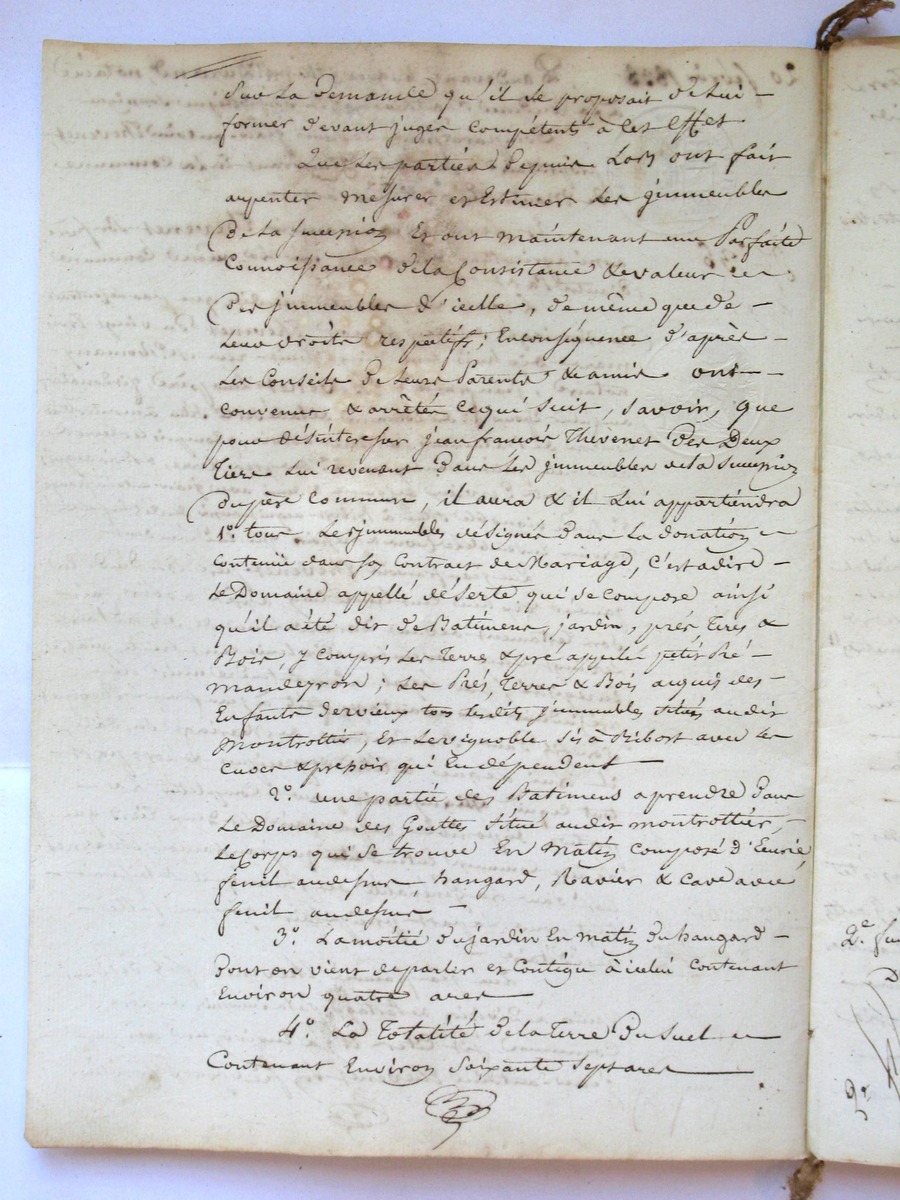 Sur La demande qu'il se proposait de Lui
former devant juges compétents à cet Effet
Que Les parties Depuis Lors ont fait
arpenter mesurer et Estimer Les jmmeubles
De La succession Et ont maintenant une Parfaite
Connoissance de la Consistance & valeur
Des jmmeubles d'icelle, de même que de
Leurs droits respectifs; En conséquence d'après
Les Conseils de Leurs Parents & amis ont
convenus & arrêtés ce qui suit, savoir, que
pour désinteresser jean françois Thevenet Des Deux
Tiers Lui revenant dans Les jmmeubles de la succession
du père Commun, il aura & il Lui appartiendra
1°. tous Les jmmeubles désignés dans La donation
Contenuë dans son Contract de Mariage, C'est adire
Le Domaine appellé déserte qui se compose ainsi
qu'il a été dit de Batimens, jardin, prés Terres &
Bois, y compris Les Terres & pré appellé petit Pré
mandeyron; Les Prés, Terres & Bois acquis des
Enfants dervieux tous lesdits jmmeubles situés audit
Montrottier, Et Le vignoble sis à Ribost avec les
Cuves & pressoir qui En dépendent
2°. une partie des Batimens a prendre dans
Le Domaine des Gouttes situé audit montrottier,
Le Corps qui se trouve En Matin composé d'Ecurie,
fenil audessus, hangard, Ravier & Cave avec
fenil audessus
3°. La moitié du jardin En matin du hangard
dont on vient de parler et Contigu à icelui contenant
Environ quatre ares
4°. La Totalité de la Terre Du Suel
Contenant Environ Soixante Sept ares
2.e
2.